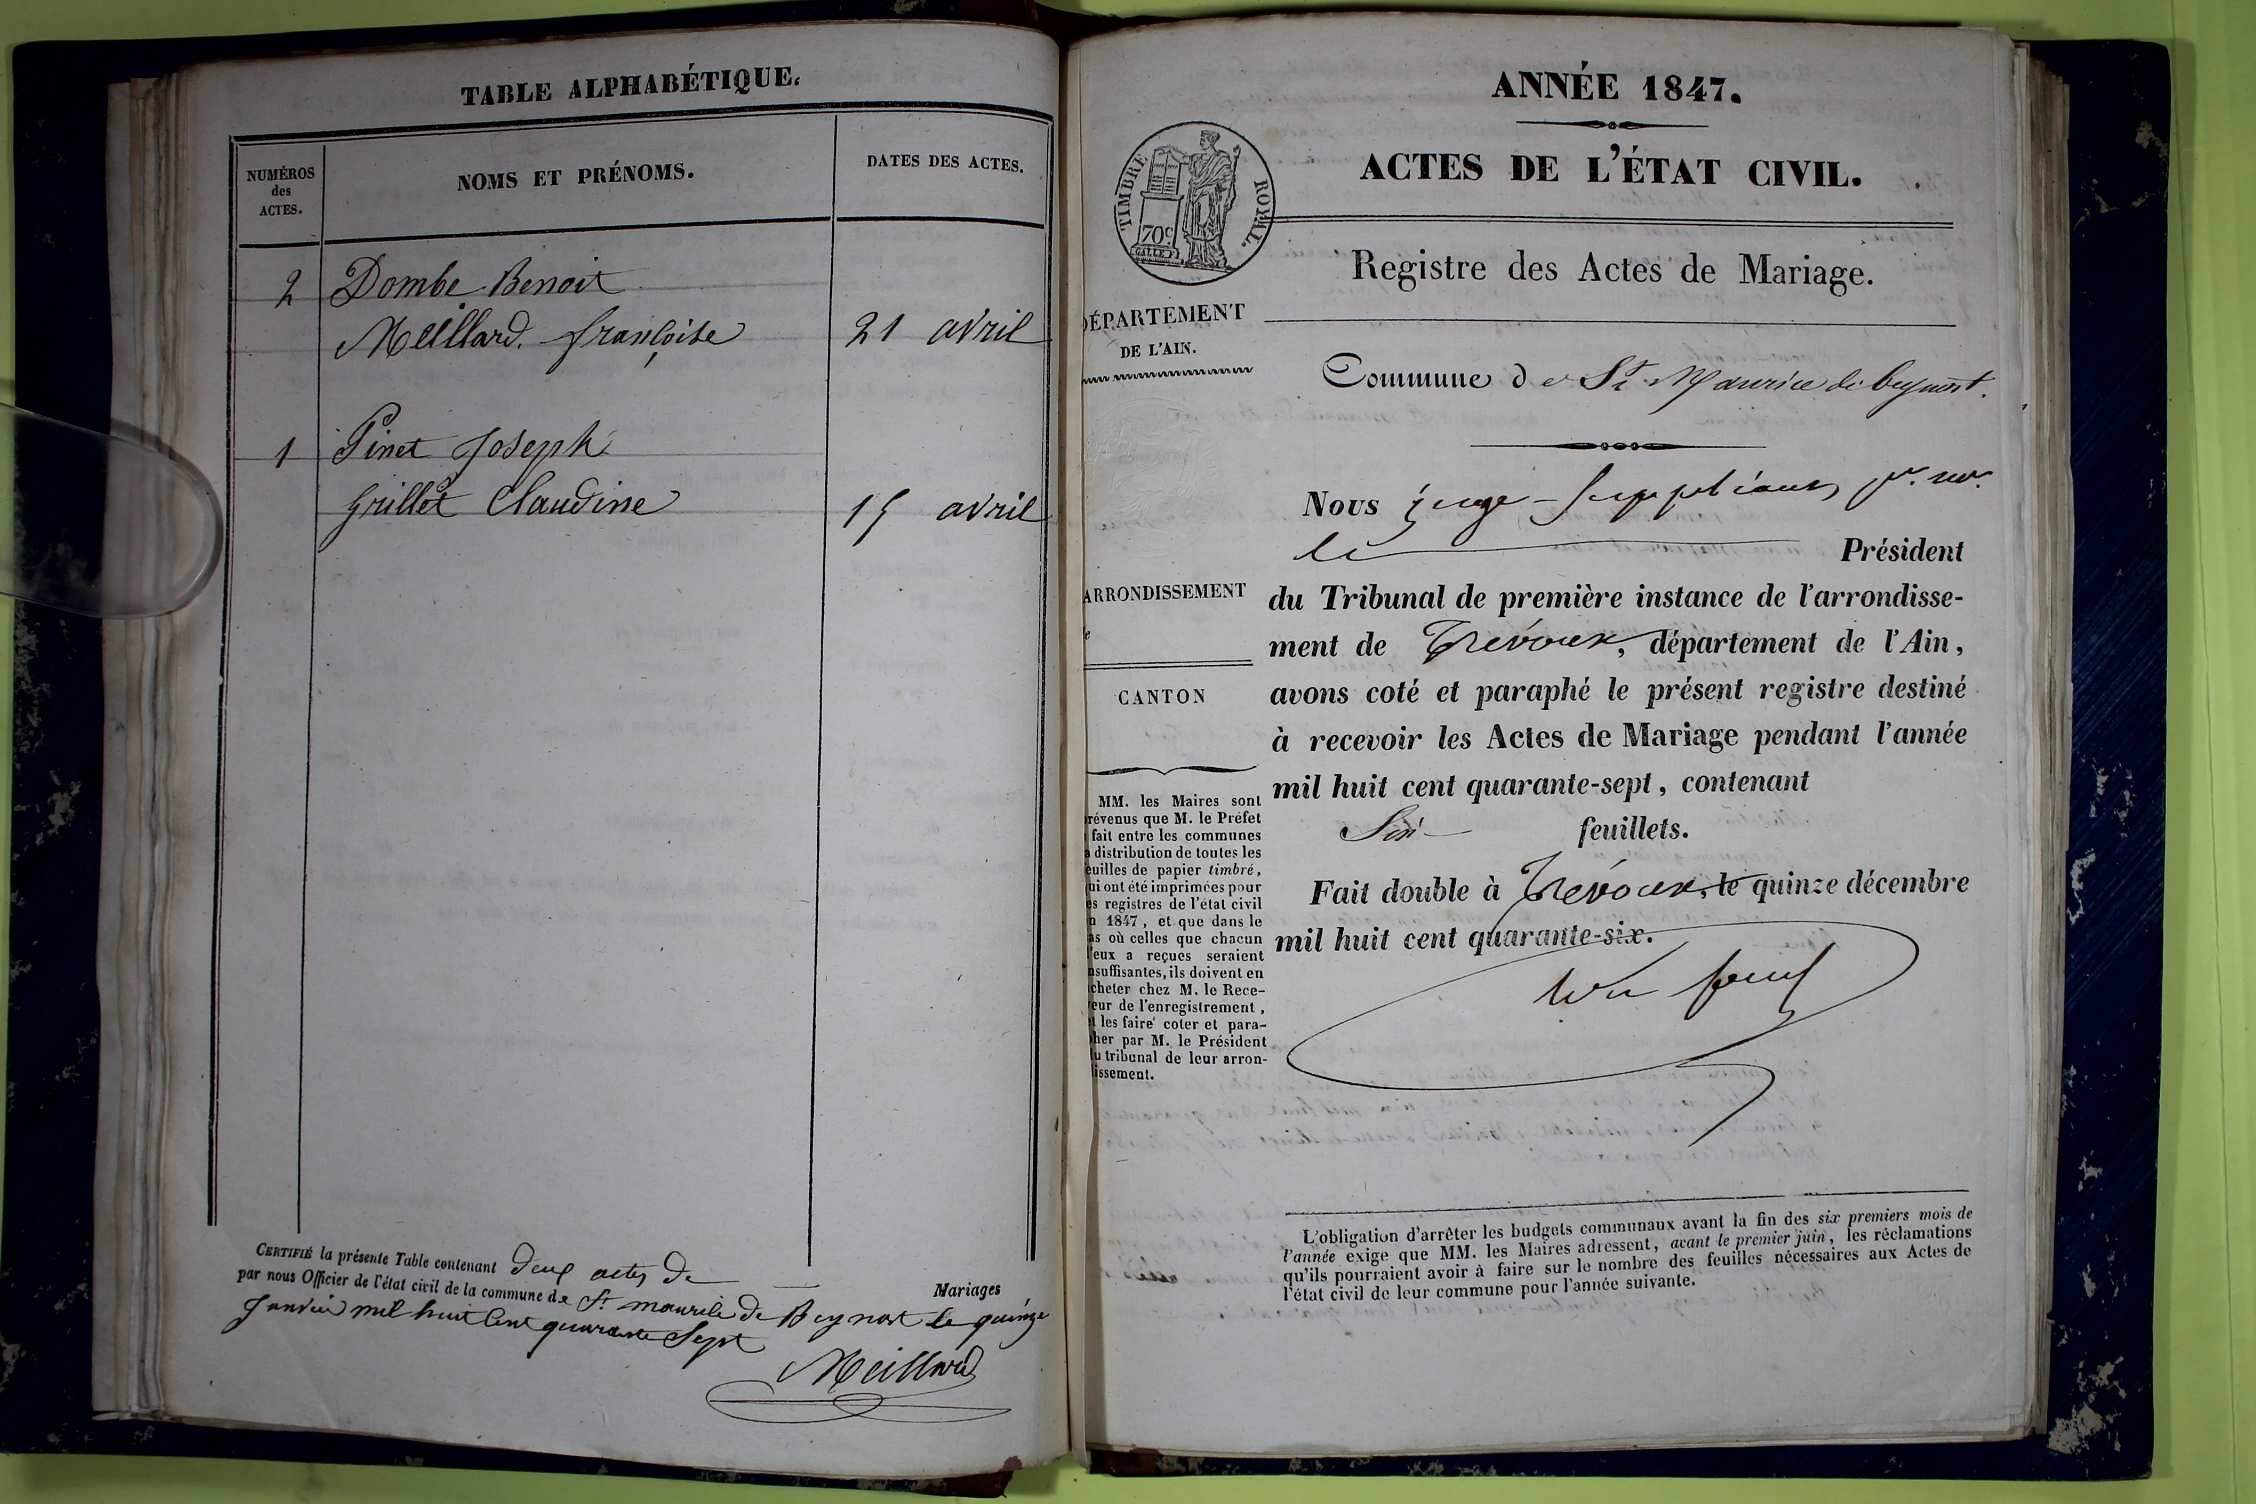 TABLE ALPHABÉTIQUE.
NUMÉROS
des
ACTES.
NOMS ET PRÉNOMS.
DATES DES ACTES.
2 Dombe Benoit
Meillard françoise 21 avril
1 Pinet Joseph
Grillet Claudine 15 avril
CERTIFIÉ la présente Table contenant deux actes de Mariages
par nous Officier de l'état civil de la commune de St maurice de Beynost le quinze
Janvier mil huit cent quarante Sept
Meillard
ANNÉE 1847.
ACTES DE L'ÉTAT CIVIL.
TIMBRE ROYAL.
70c
Registre des Actes de Mariage.
DÉPARTEMENT
DE L'AIN.
Commune de St Maurice de beynost.
Nous juge-suppléant pr. mr.
le Président
ARRONDISSEMENT
du Tribunal de première instance de l'arrondisse-
e
ment de Trévoux, département de l'Ain,
CANTON
avons coté et paraphé le présent registre destiné
à recevoir les Actes de Mariage pendant l'année
mil huit cent quarante-sept, contenant
Six feuillets.
Fait double à Trévoux, le quinze décembre
mil huit cent quarante-six.
MM. les Maires sont
révenus que M. le Préfet
fait entre les communes
a distribution de toutes les
euilles de papier timbré,
ui ont été imprimées pour
es registres de l'état civil
n 1847, et que dans le
as où celles que chacun
'eux a reçues seraient
nsuffisantes, ils doivent en
cheter chez M. le Rece-
eur de l'enregistrement,
t les faire coter et para-
her par M. le Président
u tribunal de leur arron-
issement.
L'obligation d'arrêter les budgets communaux avant la fin des six premiers mois de
l'année exige que MM. les Maires adressent, avant le premier juin, les réclamations
qu'ils pourraient avoir à faire sur le nombre des feuilles nécessaires aux Actes de
l'état civil de leur commune pour l'année suivante.